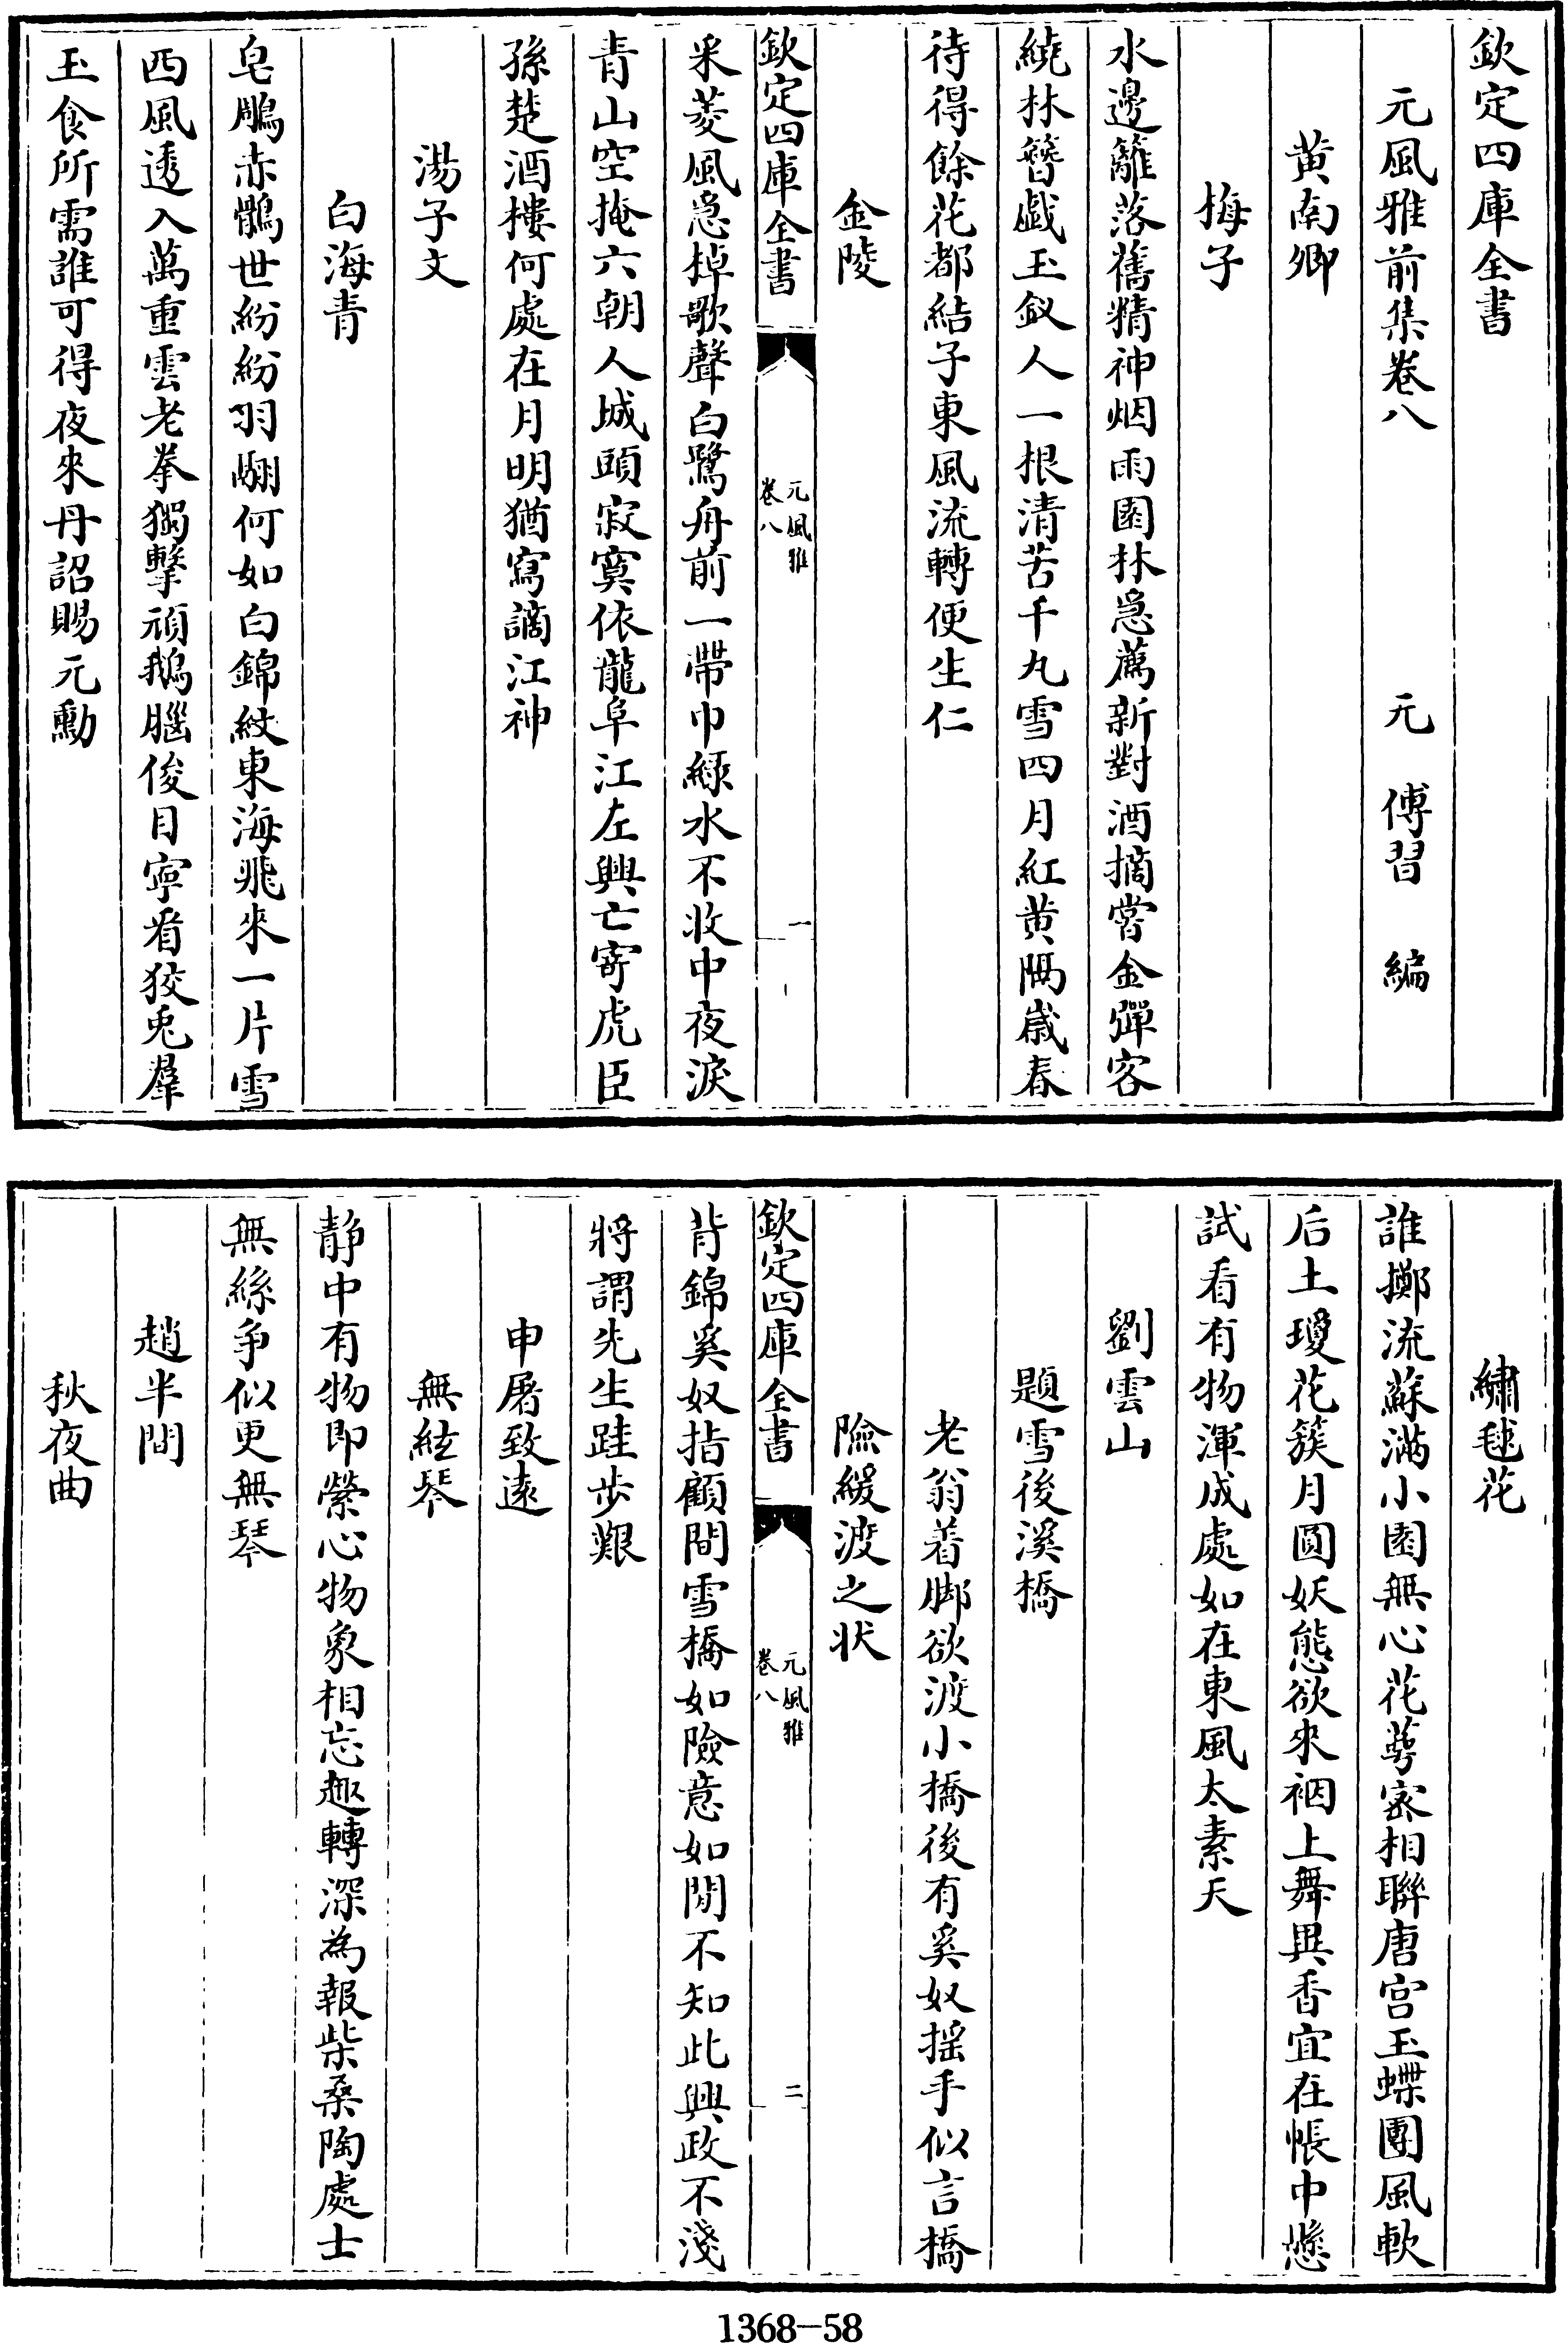 欽定四庫全書
元風雅前集卷八
元 傅習 編
黄南卿
梅子
水邊籬落舊精神烟雨園林急薦新對酒摘嘗金彈客
繞林簪戲玉釵人一根清苦千丸雪四月紅黄隔歲春
待得餘花都結子東風流轉便生仁
金陵
欽定四庫全書
元風雅
卷八
一
采菱風急棹歌聲白鷺舟前一帶巾綠水不收中夜淚
青山空掩六朝人城頭寂寞依龍阜江左興亡寄虎臣
孫楚酒樓何處在月明猶寫謫江神
湯子文
白海青
皂鵰赤鶻世紛紛羽翮何如白錦紋東海飛來一片雪
西風透入萬重雲老拳獨擊頑鵝腦俊目寧看狡兎羣
玉食所需誰可得夜來丹詔賜元勳
繡毬花
誰擲流蘇滿小園無心花萼宻相聯唐宫玉蝶團風軟
后土瓊花簇月圓妖態欲來裀上舞異香宜在帳中懸
試看有物渾成處如在東風太素天
劉雲山
題雪後溪橋
老翁着脚欲渡小橋後有奚奴揺手似言橋
險緩渡之状
欽定四庫全書
元風雅
卷八
二
背錦奚奴指顧間雪橋如險意如閒不知此興政不淺
將謂先生跬步艱
申屠致遠
無絃琴
静中有物即縈心物象相忘趣轉深為報柴桑陶處士
無絲争似更無琴
趙半間
秋夜曲
1368-58